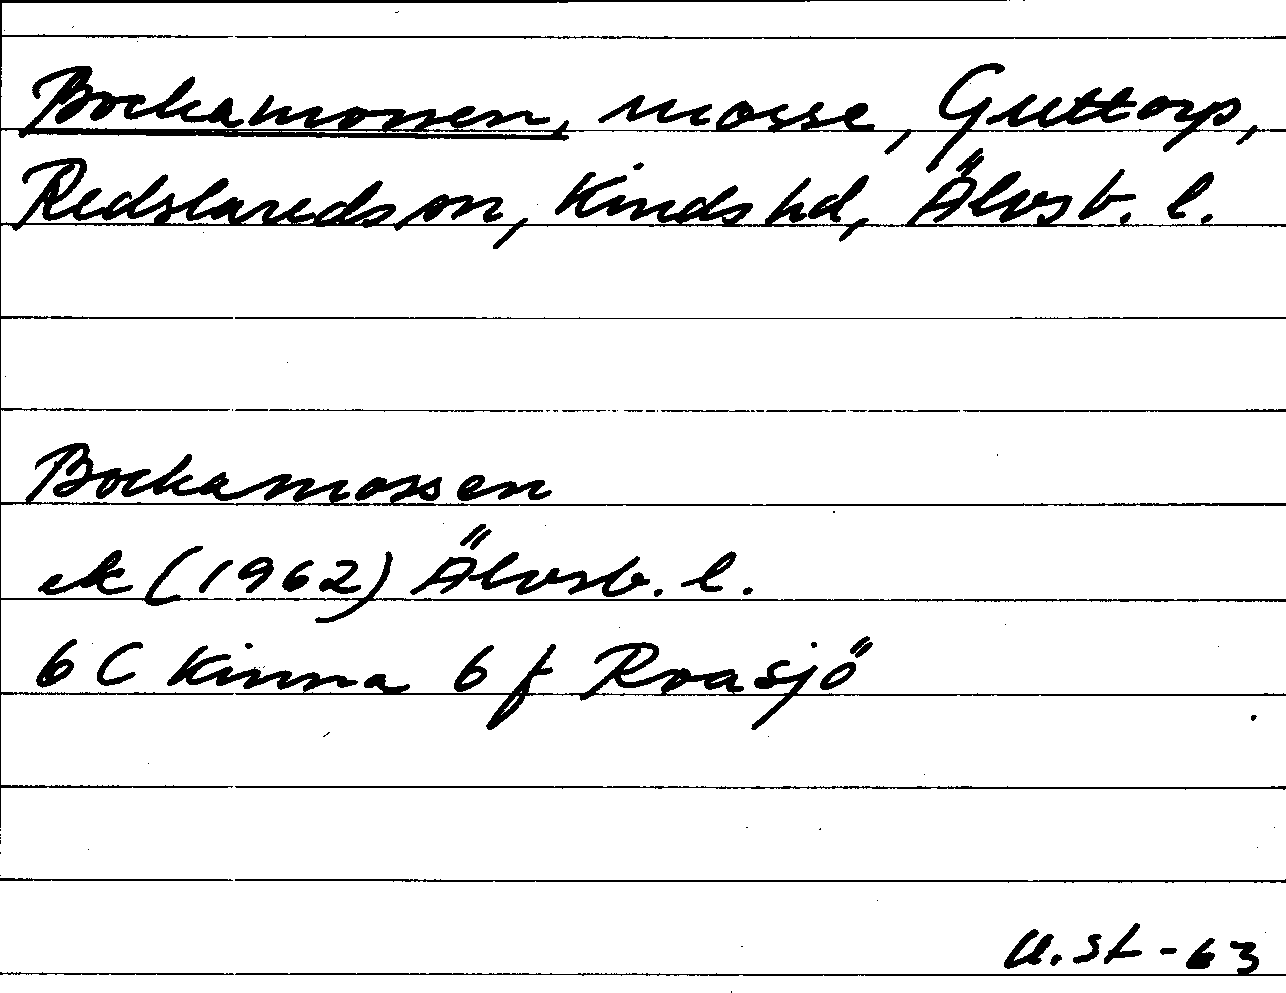 Bockamossen, mosse, Guttorp,
Redslaredson, Kindshd, Älvsb. l.
Bockamossen
ek (1962) Älvsb. l.
6 C Kinna 6 f Roasjö
U.St-63